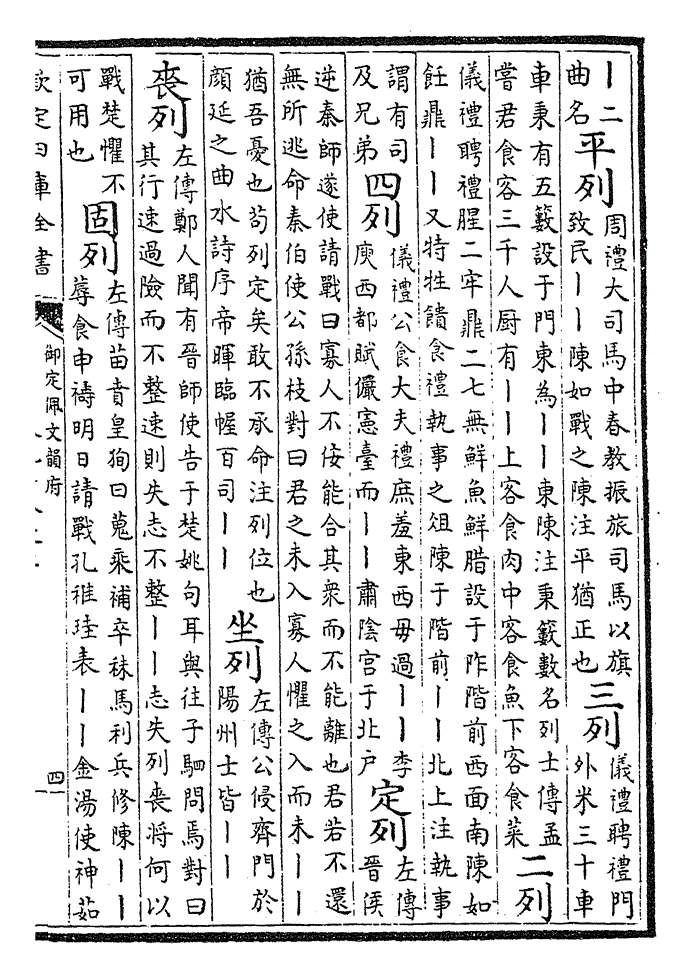 ｜二
曲名
平列
周禮大司馬中春教振旅司馬以旗
致民｜｜陳如戰之陳注平猶正也
三列
儀禮聘禮門
外米三十車
車秉有五籔設于門東為｜｜東陳注秉籔數名列士傳孟
嘗君食客三千人厨有｜｜上客食肉中客食魚下客食菜
二列
儀禮聘禮腥二牢鼎二七無鮮魚鮮腊設于阼階前西面南陳如
飪鼎｜｜又特牲饋食禮執事之俎陳于階前｜｜北上注執事
謂有司
及兄弟
四列
儀禮公食大夫禮庶羞東西毋過｜｜李
庾西都賦儼憲臺而｜｜肅陰宫于北户
定列
左傳
晉侯
逆秦師遂使請戰曰寡人不佞能合其衆而不能離也君若不還
無所逃命秦伯使公孫枝對曰君之未入寡人懼之入而未｜｜
猶吾憂也茍列定矣敢不承命注列位也
顔延之曲水詩序帝暉臨幄百司｜｜
坐列
左傳公侵齊門於
陽州士皆｜｜
喪列
左傳鄭人聞有晉師使告于楚姚句耳與往子駟問焉對曰
其行速過險而不整速則失志不整｜｜志失列喪將何以
戰楚懼不
可用也
固列
左傳苗賁皇狥曰蒐乘補卒秣馬利兵修陳｜｜
蓐食申禱明日請戰孔稚珪表｜｜金湯使神茹
欽定四庫全書
御定佩文韻府
四